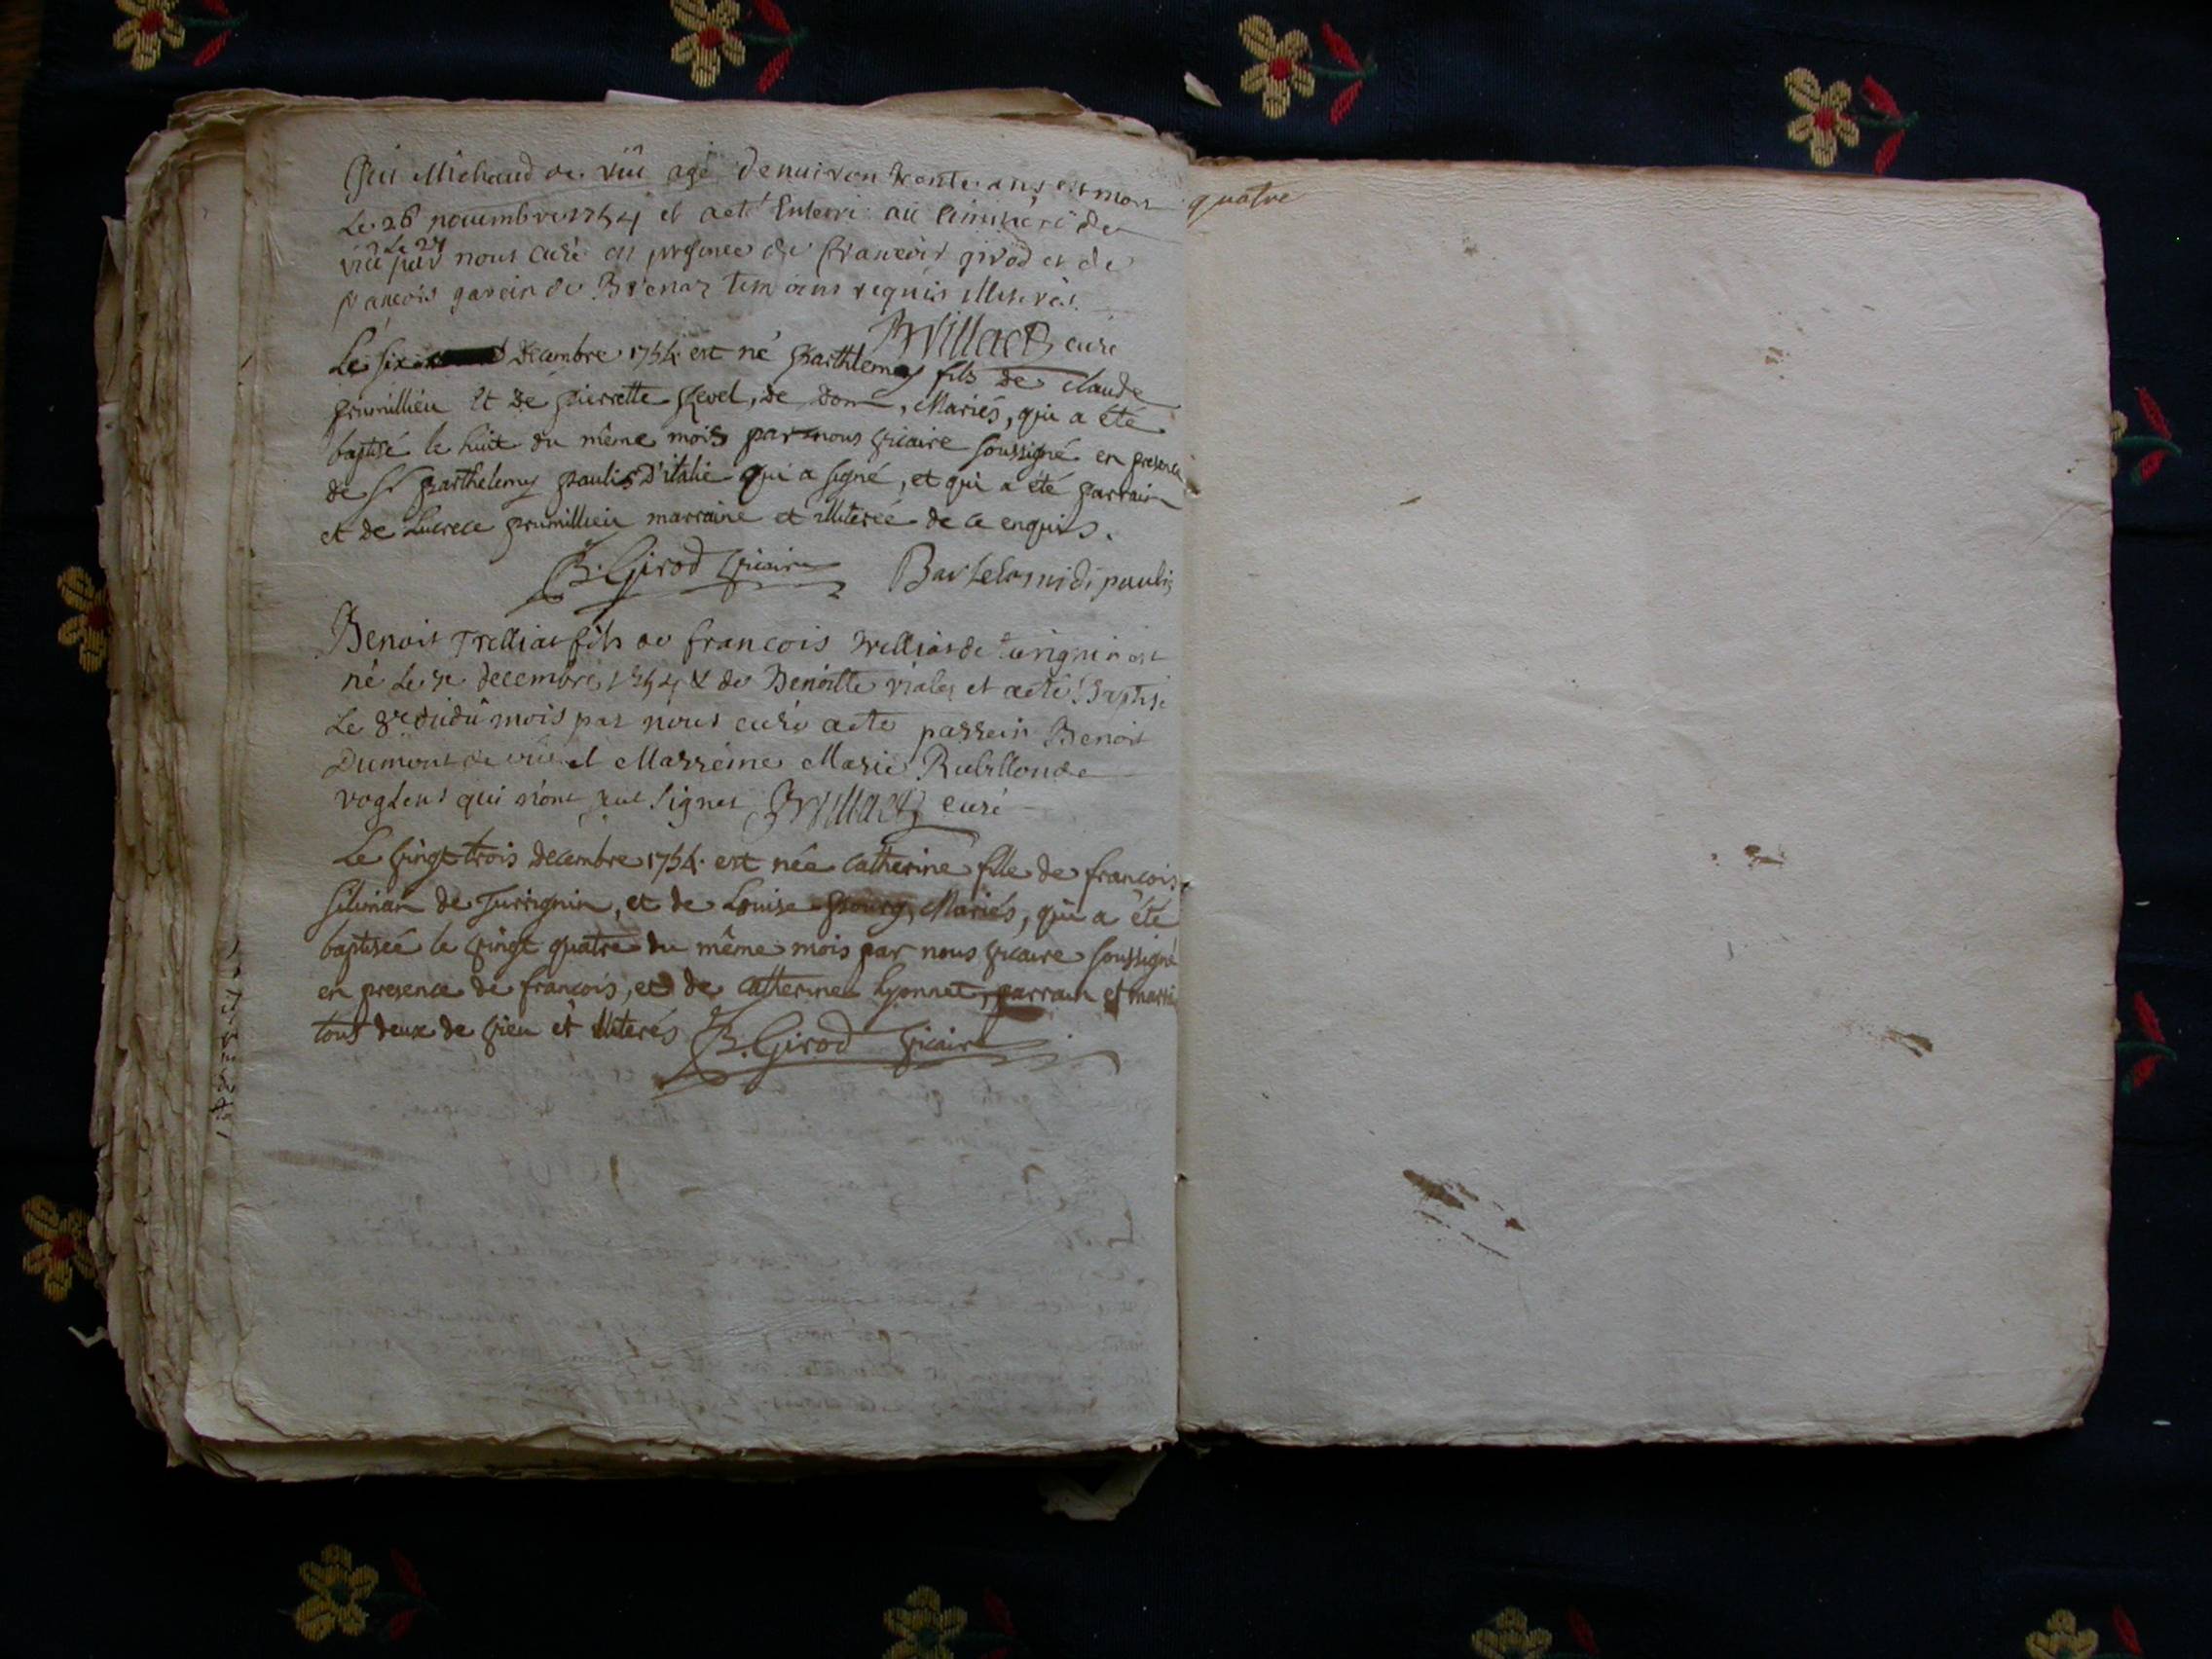 Gui Michaud de viu agé denuiron trente ans est mort
Le 26 nouembre 1754 et aeté Enterré au Cimitière de
Le 27
viu par nous curé en presence de francois girod et de
francois gavein de Brenaz temoins requis illiterés.
curé
Le six decembre 1754 est né Barthlemy fils de claude
prumillieu et de pierrette Revel, de dom, Mariés, qui a été
baptisé le huit du même mois par nous vicaire soussigné en presence
de sr Barthelemy paulis D'italie qui a signé, et qui a été parrain
et de Lucrece prumillieu marraine et illiterée de ce enquis.
B. Girod vicaire Bartelomi di paulis
Benoit Trelliat fils de francois Trelliat de turignin est
né Le 7e decembre 1754 & de Benoitte vialey et aeté Baptisé
Le 8e dudû mois par nous curé aeté parrein Benoit
Dumont de viu et Marreine Marie
voglens qui n'ont sut signer curé
Le vingt trois decembre 1754. est née catherine fille de francois
silinan de Turrignin, et de Louise Bourg, Mariés, qui a été
baptisée le vingt quatre du même mois par nous vicaire soussigné
en presence de francois, et de catherine Lyonnet, parrain et marrai
tous deux de vieu et illiterés B. Girod vicaire
quatre